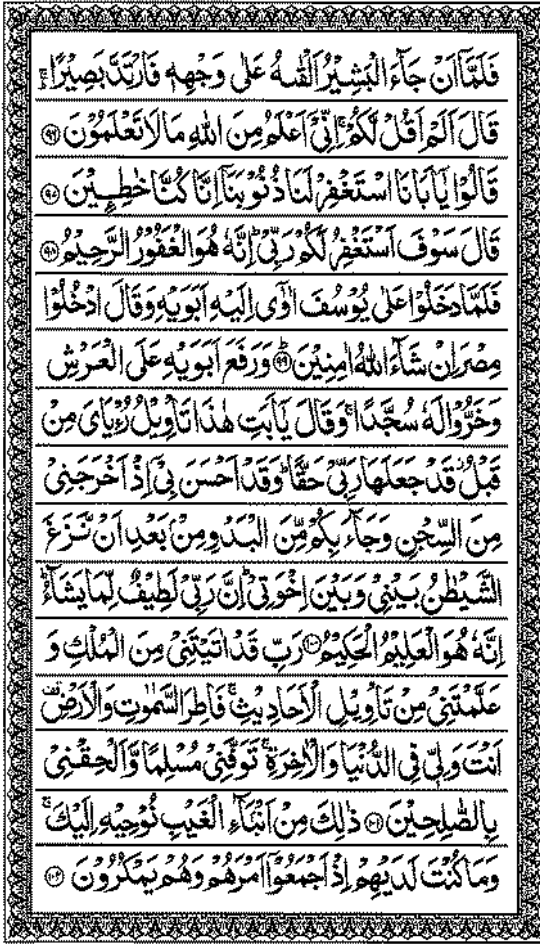 فَلَمَّآ اَنْ جَآءَ الْبَشِيْرُ اَلْقٰىهُ عَلٰى وَجْهِهٖ فَارْتَدَّ بَصِيْرًا ۚ
قَالَ اَلَمْ اَقُلْ لَّكُمْ ۚ اِنِّيْٓ اَعْلَمُ مِنَ اللّٰهِ مَا لَا تَعْلَمُوْنَ ﴿۹۶﴾
قَالُوْا يٰٓاَبَانَا اسْتَغْفِرْ لَنَا ذُنُوْبَنَآ اِنَّا كُنَّا خٰطِـِٕيْنَ ﴿۹۷﴾
قَالَ سَوْفَ اَسْتَغْفِرُ لَكُمْ رَبِّيْ ؕ اِنَّهٗ هُوَ الْغَفُوْرُ الرَّحِيْمُ ﴿۹۸﴾
فَلَمَّا دَخَلُوْا عَلٰى يُوْسُفَ اٰوٰٓى اِلَيْهِ اَبَوَيْهِ وَقَالَ ادْخُلُوْا
مِصْرَ اِنْ شَآءَ اللّٰهُ اٰمِنِيْنَ ﴿۹۹﴾ؕ وَرَفَعَ اَبَوَيْهِ عَلَى الْعَرْشِ
وَخَرُّوْا لَهٗ سُجَّدًا ۚ وَقَالَ يٰٓاَبَتِ هٰذَا تَاْوِيْلُ رُءْيَايَ مِنْ
قَبْلُ ؗ قَدْ جَعَلَهَا رَبِّيْ حَقًّا ؕ وَقَدْ اَحْسَنَ بِيْٓ اِذْ اَخْرَجَنِيْ
مِنَ السِّجْنِ وَجَآءَ بِكُمْ مِّنَ الْبَدْوِ مِنْۢ بَعْدِ اَنْ نَّزَغَ
الشَّيْطٰنُ بَيْنِيْ وَبَيْنَ اِخْوَتِيْ ؕ اِنَّ رَبِّيْ لَطِيْفٌ لِّمَا يَشَآءُ ؕ
اِنَّهٗ هُوَ الْعَلِيْمُ الْحَكِيْمُ ﴿۱۰۰﴾ رَبِّ قَدْ اٰتَيْتَنِيْ مِنَ الْمُلْكِ وَ
عَلَّمْتَنِيْ مِنْ تَاْوِيْلِ الْاَحَادِيْثِ ۚ فَاطِرَ السَّمٰوٰتِ وَالْاَرْضِ ۫
اَنْتَ وَلِيّٖ فِي الدُّنْيَا وَالْاٰخِرَةِ ۚ تَوَفَّنِيْ مُسْلِمًا وَّاَلْحِقْنِيْ
بِالصّٰلِحِيْنَ ﴿۱۰۱﴾ ذٰلِكَ مِنْ اَنْۢبَآءِ الْغَيْبِ نُوْحِيْهِ اِلَيْكَ ۚ
وَمَا كُنْتَ لَدَيْهِمْ اِذْ اَجْمَعُوْٓا اَمْرَهُمْ وَهُمْ يَمْكُرُوْنَ ﴿۱۰۲﴾